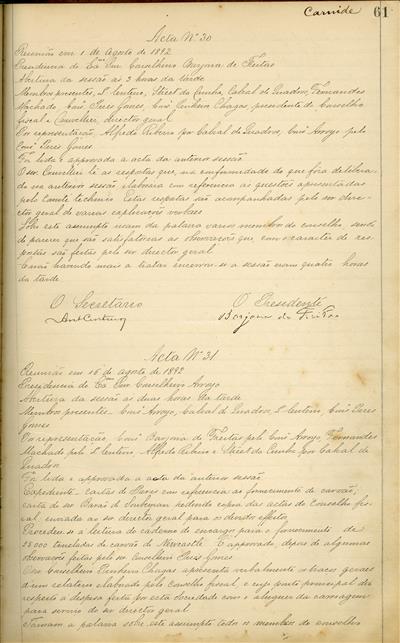 Carnide 61
Acta Nº 30
Reunião em 1 de Agosto de 1892
Presidencia do Exmo Snr Conselheiro Barjona de Freitas
Abertura da sessão ás 3 horas da tarde
Membros presentes, S. Centeno, Street da Cunha, Cabral de Quadros, Fernandes
Machado, Luiz Peres Gomes, Luiz Pinheiro Chagas, presidente do Conselho
fiscal e Conselheiro, director geral
Por representação, Alfredo Ribeiro por Cabral de Quadros, Luiz Arroyo pelo
Luiz Peres Gomes
Foi lida e approvada a acta da anterior sessão
O snr. Conselheiro lê as respostas que, na conformidade do que fôra delibera-
do na anterior sessão elaborara em referencia ás questões apresentadas
pelo Comité technico. Estas respostas são acompanhadas pelo snr dire-
ctor geral de varias explicações verbaes
Sobre este assumpto usam da palavra varios membros do conselho, sendo
de parecer que são satisfatorias as observações que com caracter de res-
postas são feitas pelo snr director geral
E não havendo mais a tratar encerrou-se a sessão eram quatro horas
da tarde
O Secretario O Presidente
Barjona de Freitas
Acta Nº 31
Reunião em 16 de agosto de 1892
Presidencia do Exmo Snr Conselheiro Arroyo
Abertura da sessão as duas horas da tarde
Membros presentes. Luiz Arroyo, Cabral de Quadros, S. Centeno, Luiz Peres
Gomes
Por representação, Luiz Barjona de Freitas pelo Luiz Arroyo, Fernandes
Machado pelo S. Centeno, Alfredo Ribeiro e Street da Cunha por Cabral de
Quadros
Foi lida e approvada a acta da anterior sessão
Expediente. cartas de Paris em referencia ao fornecimento de carvão,
carta do snr Barão de pedindo copia das actas do Conselho fis-
cal, enviada ao snr director geral para os devidos effeitos
Procedeu-se á leitura do caderno de encargos para o fornecimento de
28000 toneladas de carvão de Newcastle. É approvado, depois de algumas
observações feitas pelo snr Conselheiro Peres Gomes
O snr Conselheiro Pinheiro Chagas apresenta verbalmente os traços geraes
d'um relatorio elaborado pelo Conselho fiscal, e cujo ponto principal diz
respeito a despesa feita por esta sociedade com o aluguer da carruagem
para serviço do snr director geral
Tomam a palavra sobre este assumpto todos os membros do conselho